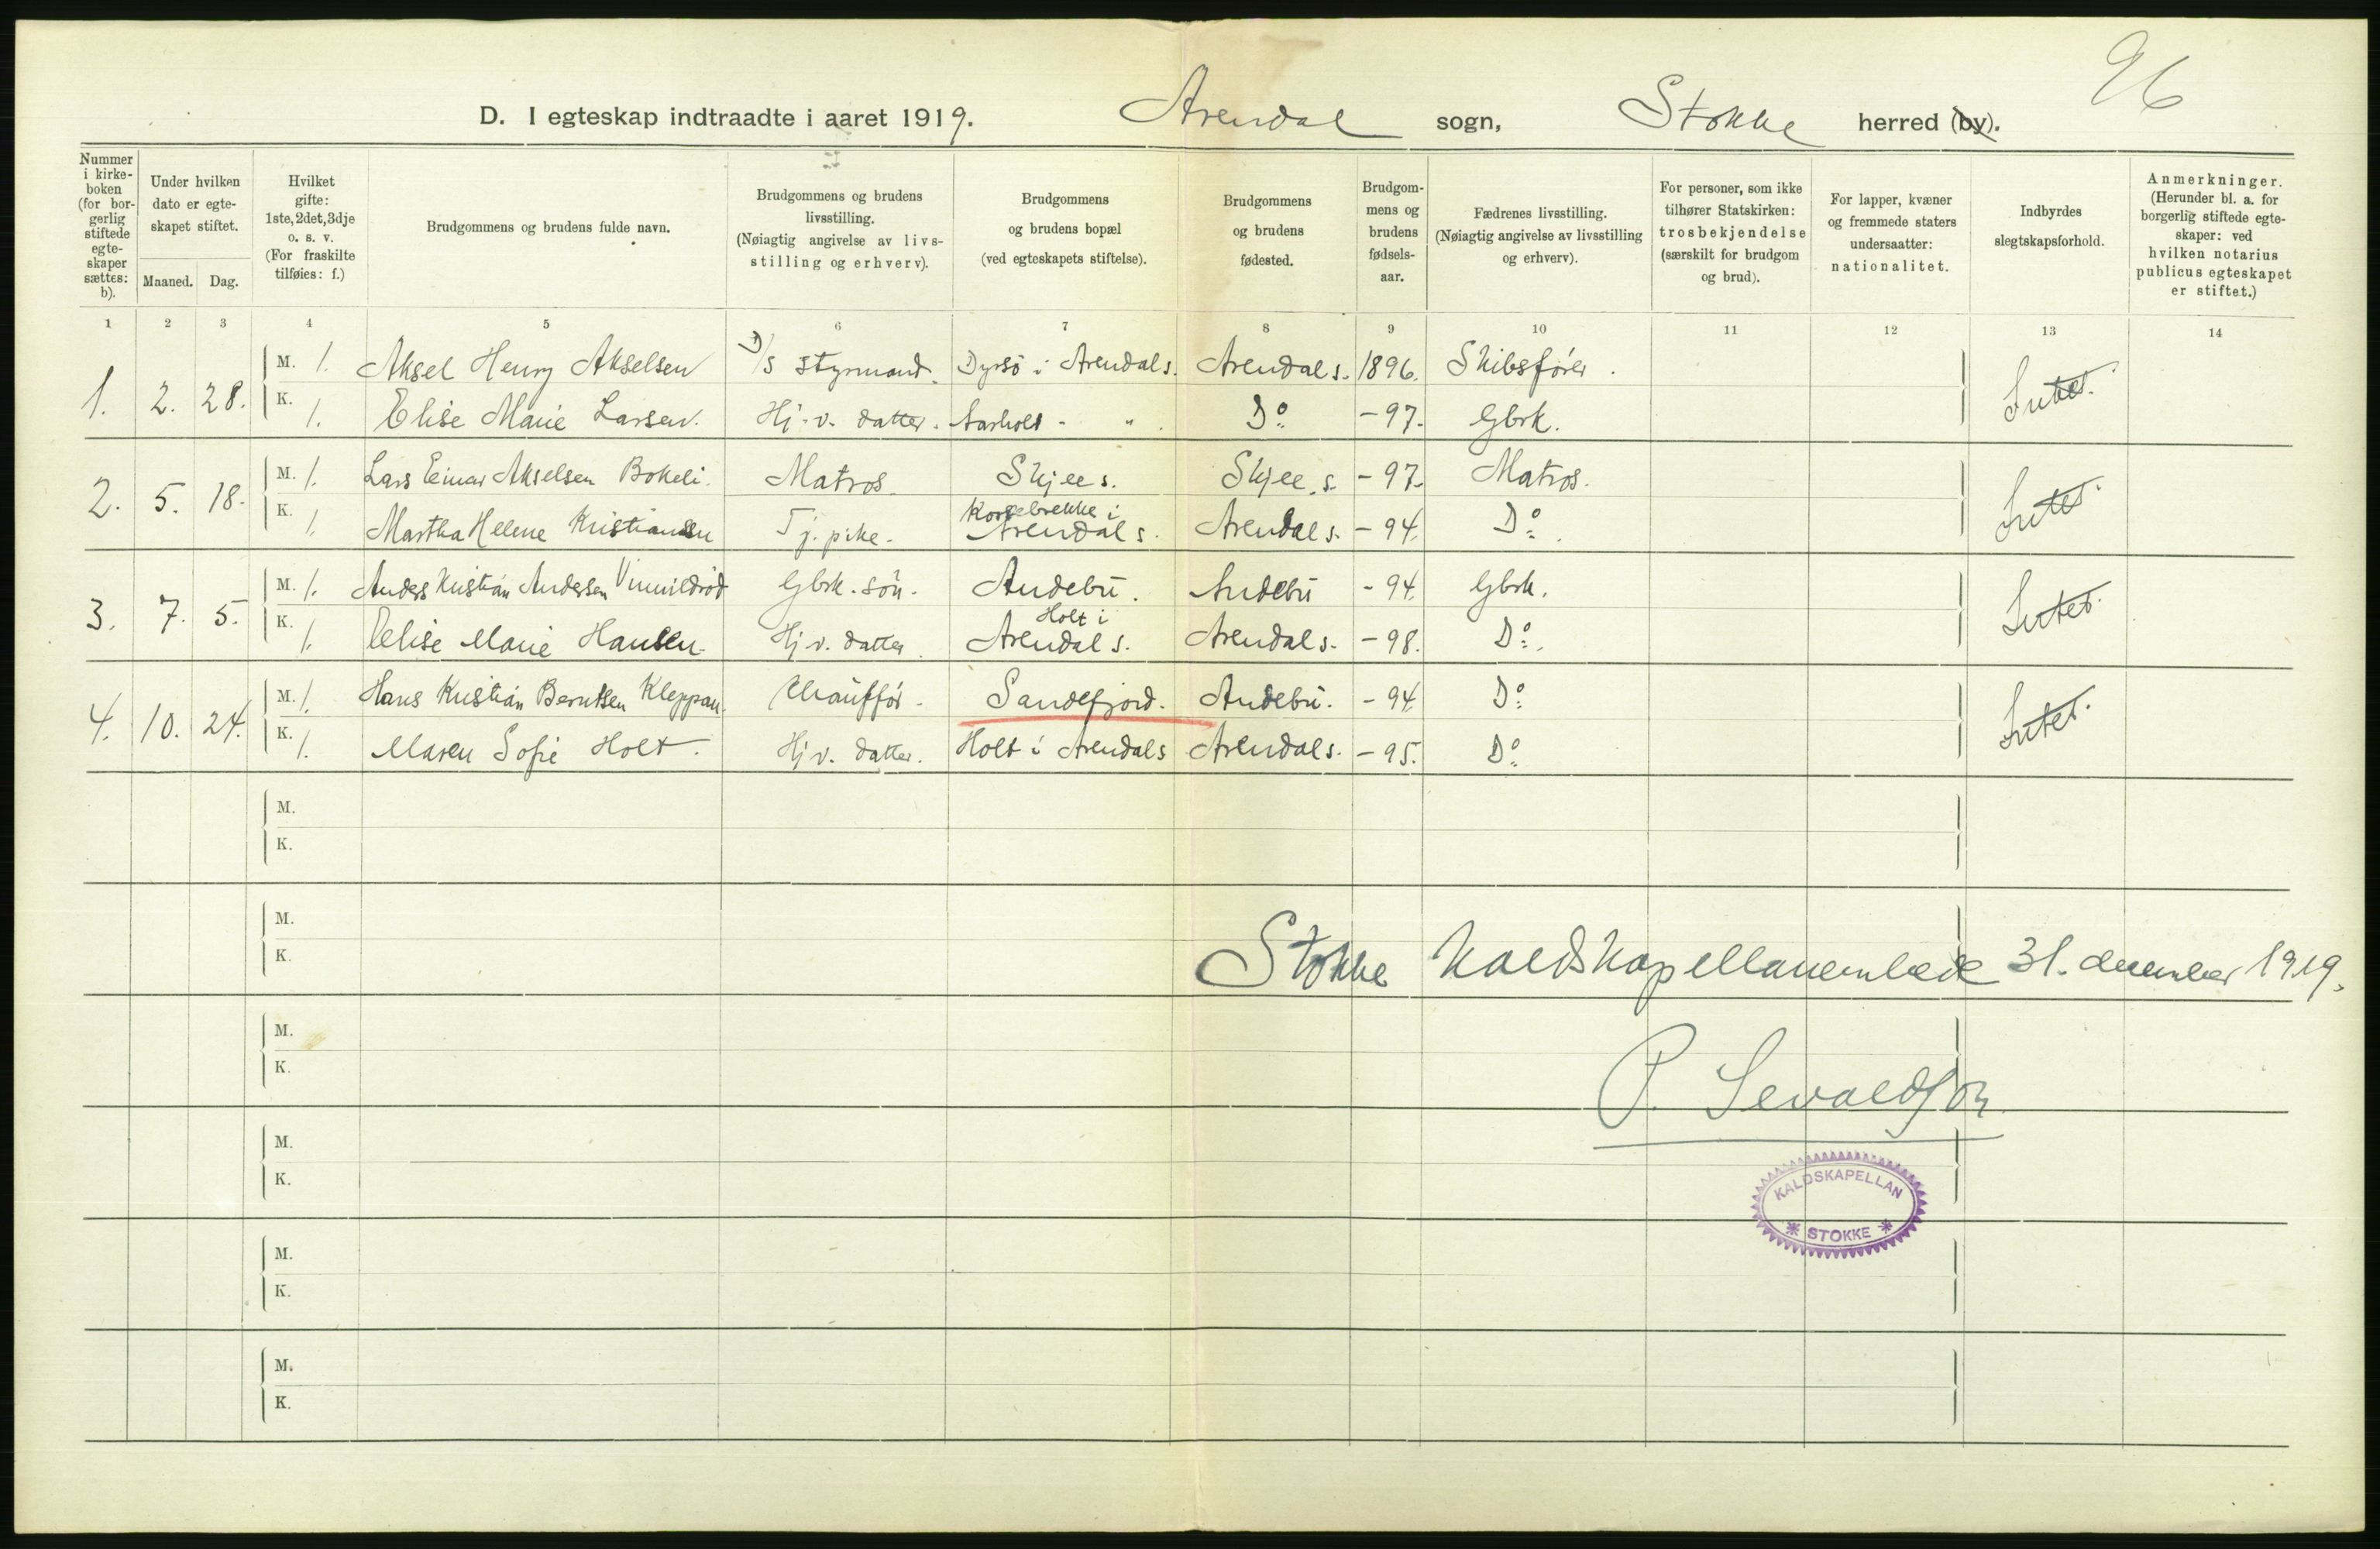 96
D. I egteskap indtraadte i aaret 1919. Arendal sogn, Stokke herred (by).
Nummer i kirkeboken (for borgerlig stiftede egteskaper sættes: b).
Under hvilken dato er egteskapet stiftet.
Maaned. Dag.
Hvilket gifte: 1ste, 2det, 3dje o. s. v. (For fraskilte tilføies: f.)
Brudgommens og brudens fulde navn.
Brudgommens og brudens livsstilling. (Nøiagtig angivelse av livsstilling og erhverv).
Brudgommens og brudens bopæl (ved egteskapets stiftelse).
Brudgommens og brudens fødested.
Brudgommens og brudens fødselsaar.
Fædrenes livsstilling. (Nøiagtig angivelse av livsstilling og erhverv).
For personer, som ikke tilhører Statskirken: trosbekjendelse (særskilt for brudgom og brud).
For lapper, kvæner og fremmede staters undersaatter: nationalitet.
Indbyrdes slegtskapsforhold.
Anmerkninger. (Herunder bl. a. for borgerlig stiftede egteskaper: ved hvilken notarius publicus egteskapet er stiftet.)
1 2 3 4 5 6 7 8 9 10 11 12 13 14
1. 2. 28. M. 1. Aksel Henry Akselsen D/S styrmand. Dyrsö i Arendal s. Arendal s. 1896. Skibsfører. Intet.
K. 1. Elise Marie Larsen. Hj. v. datter. Aarholt - " . Do - 97. Gbrk.
2. 5. 18. M. 1. Lars Einar Akselsen Bokeli. Matros. Skjee s. Skjee s. - 97. Matros. Intet.
K. 1. Martha Helene Kristiansen Tj. pike. Korsebrekke i Arendal s. Arendal s. - 94. Do.
3. 7. 5. M. 1. Anders Kristian Andersen Gbrk. sön. Andebu. Andebu - 94. Gbrk. Intet.
K. 1. Elise Marie Hansen. Hj. v. datter. Holt i Arendal s. Arendal s. - 98. Do.
4. 10. 24. M. 1. Hans Kristian Berntsen Kleppan. Chauffør. Sandefjord. Andebu. - 94. Do Intet.
K. 1. Maren Sofie Holt. Hj v. datter. Holt i Arendal s Arendal s. - 95. Do
M.
K.
M.
K.
Stokke kaldskapellanembede 31. december 1919.
M.
K.
P. Sevaldson
M.
K.
KALDSKAPELLAN
* STOKKE *
M.
K.
M.
K.